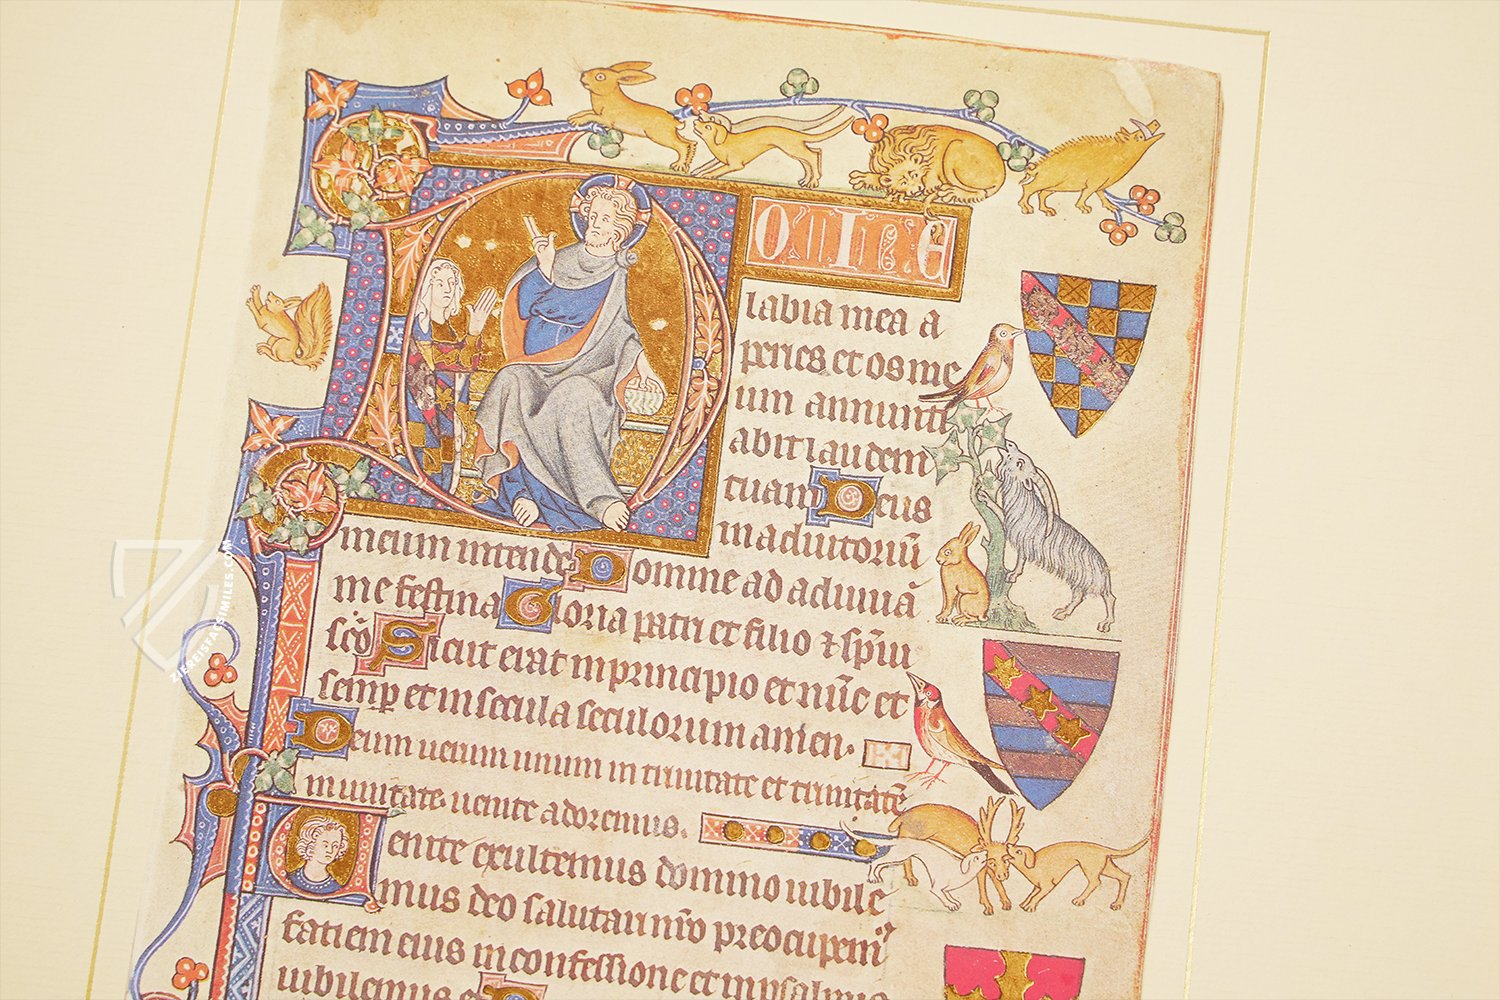 DOMIE
labia mea a
peries et os me
um annunti
abit laudem
tuam Deus
in adiutoriū
meum intende Domine ad adiuuā
me festina Gloria patri et filio ⁊ sp̄iu
sc̄o Sicut erat in principio et nūc et
semp̱ et in secula seculorum amen.
Deum uerum unum in trinitate et trinitatē
in unitate uenite adoremus.
Uenite exultemus domino iubile
mus deo salutari nr̄o preocupem᾽
fatiem eius in confessione et in psalmis
iubilemus
ZIEREISFACSIMILES.COM